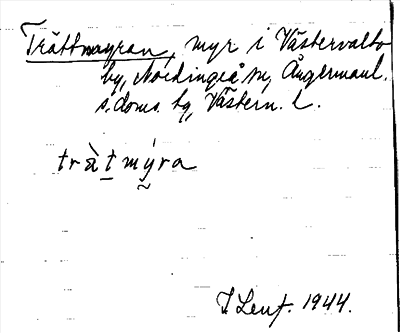 Trättmyran, myr i Västervalto
by, Nordingrå sn, Ångermanl.
s. doms. tg, Västern. l.
trät̲mýra
I Lenf. 1944.